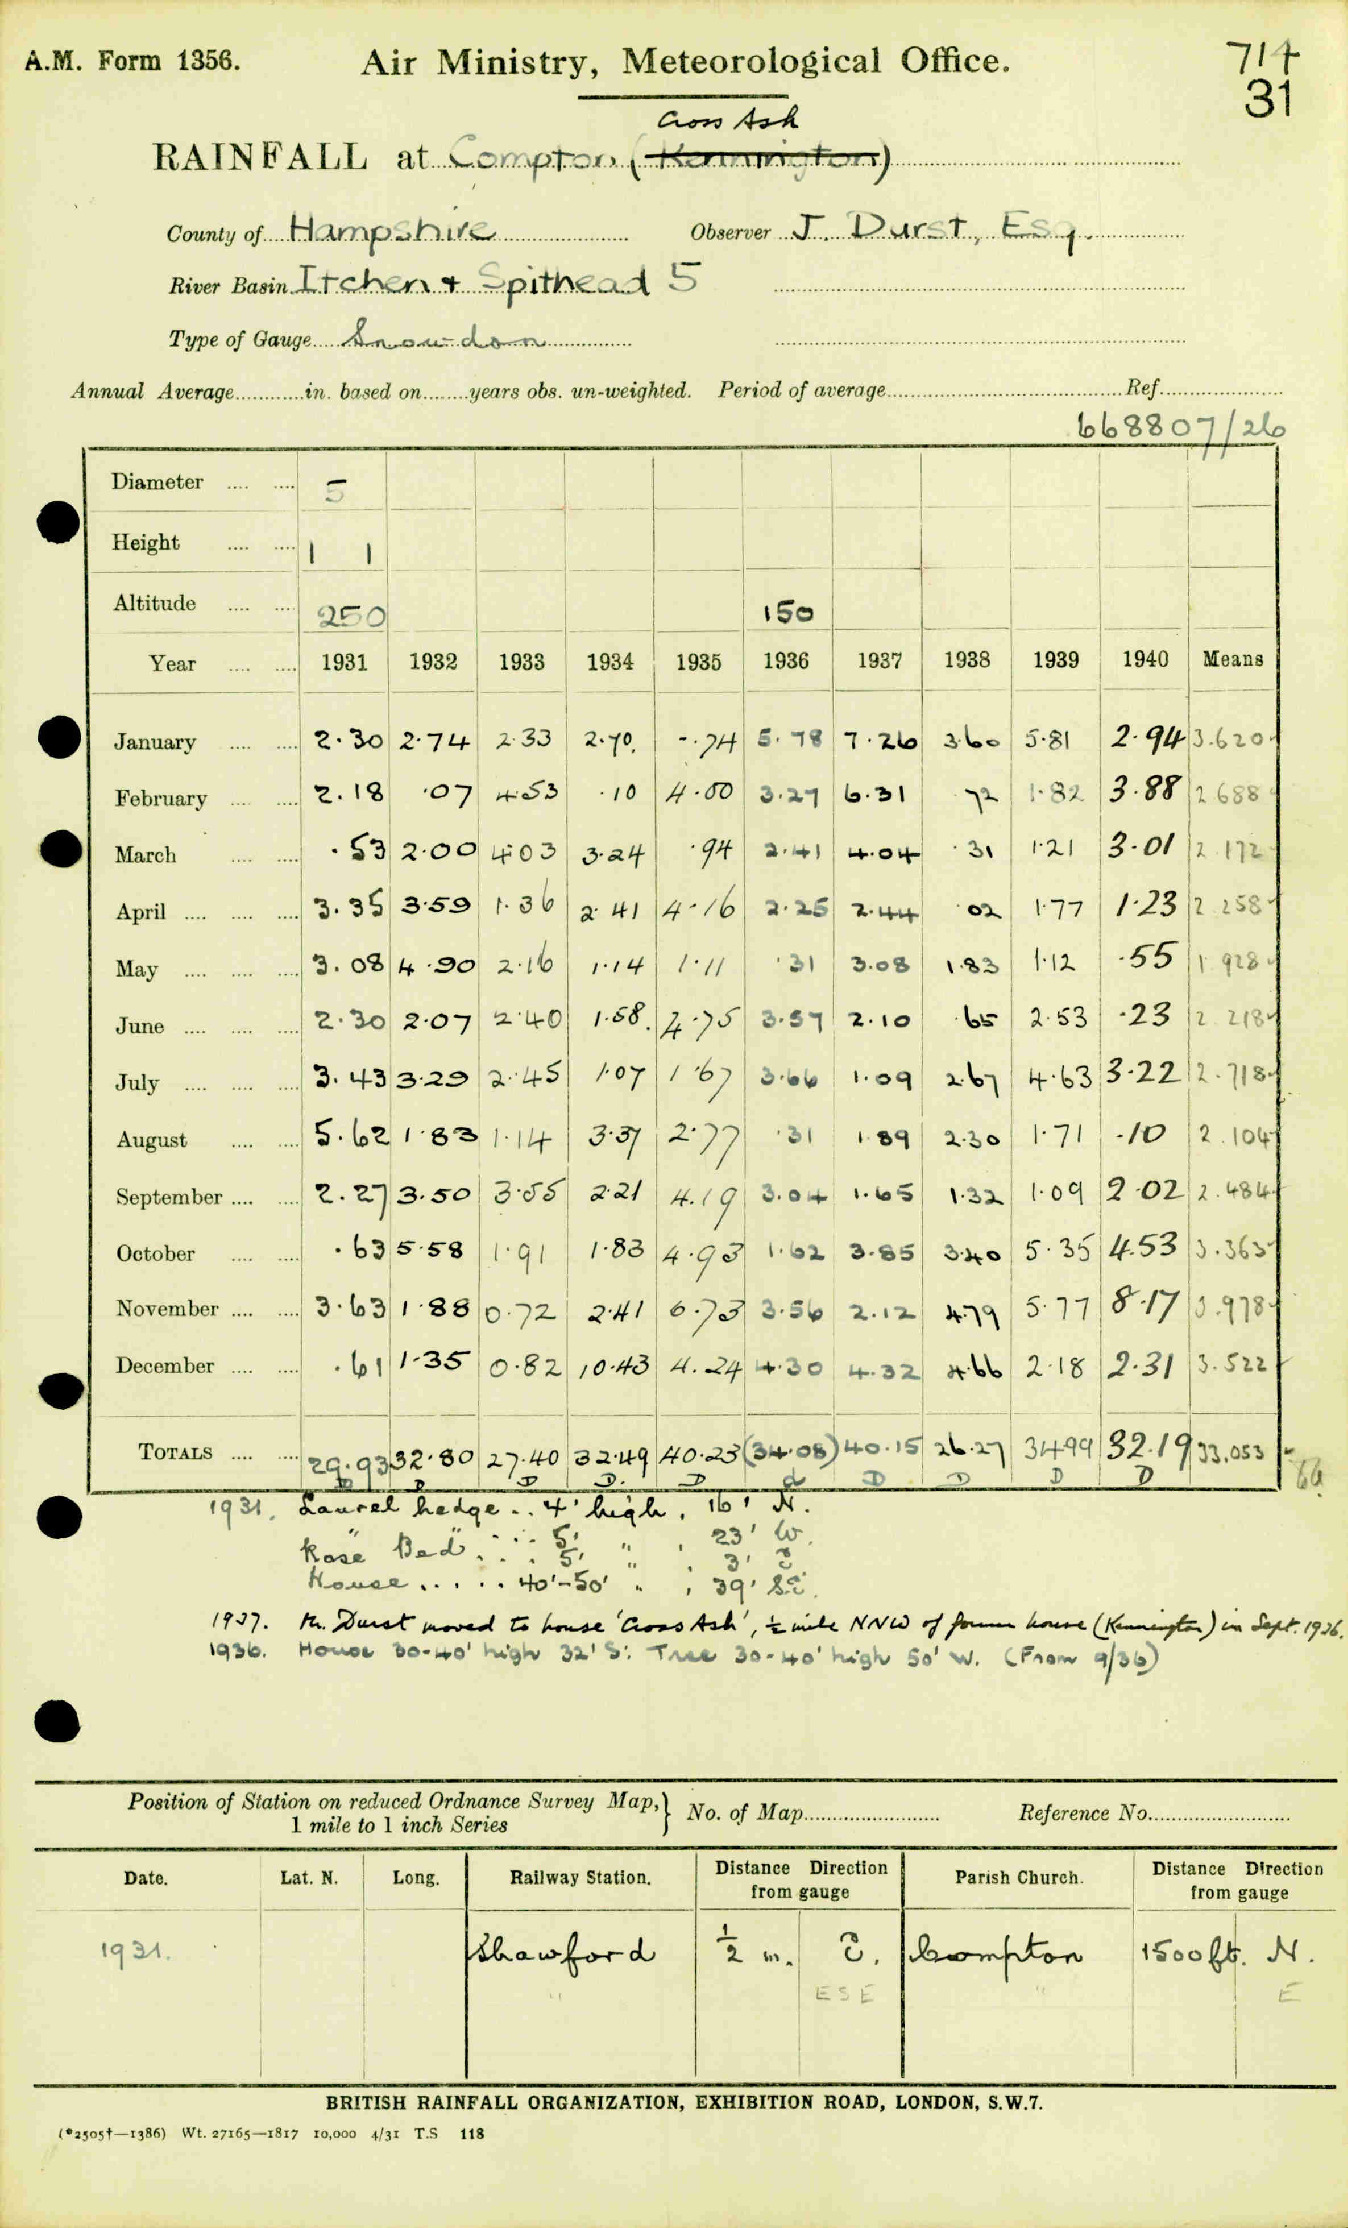 A.M. Form 1356.
Air Ministry, Meteorological Office.
714
31
Cross Ash
RAINFALL at Compton (Kennington)
County of Hampshire Observer J. Durst, Esq.
River Basin Itchen + Spithead 5
Type of Gauge Snowdon
Annual Average in. based on years obs. un-weighted. Period of average Ref.
668807/26
Diameter 5
Height 1 1
Altitude 250 150
Year 1931 1932 1933 1934 1935 1936 1937 1938 1939 1940 Means
January 2.30 2.74 2.33 2.70 .74 5.78 7.26 3.60 5.81 2.94 3.620
February 2.18 .07 4.53 .10 4.00 3.27 6.31 .72 1.82 3.88 2.688
March .53 2.00 4.03 3.24 .94 2.41 4.04 .31 1.21 3.01 2.172
April 3.35 3.59 1.36 2.41 4.16 2.25 2.44 .02 1.77 1.23 2.258
May 3.08 4.90 2.16 1.14 1.11 .31 3.08 1.83 1.12 .55 1.928
June 2.30 2.07 2.40 1.58 4.75 3.57 2.10 .65 2.53 .23 2.218
July 3.43 3.29 2.45 1.07 1.67 3.66 1.09 2.67 4.63 3.22 2.718
August 5.62 1.83 1.14 3.37 2.77 .31 1.89 2.30 1.71 .10 2.104
September 2.27 3.50 3.55 2.21 4.19 3.04 1.65 1.32 1.09 2.02 2.484
October .63 5.58 1.91 1.83 4.93 1.62 3.85 3.40 5.35 4.53 3.363
November 3.63 1.88 0.72 2.41 6.73 3.56 2.12 4.79 5.77 8.17 3.978
December .61 1.35 0.82 10.43 4.24 4.30 4.32 4.66 2.18 2.31 3.522
TOTALS 29.93 32.80 27.40 32.49 40.23 (34.08) 40.15 26.27 34.99 32.19 33.053
D D D D. D d D D D D
1931. Laurel hedge .. 4' high, 16' N.
" " ... 5' " , 23' W.
Rose Bed ... 5' " , 3' E
House ..... 40'-50' " , 39' SE.
1937. Mr. Durst moved to house 'Cross Ash', ½ mile NNW of former house (Kennington) in Sept. 1936.
1936. House 30-40' high 32' S: Tree 30-40' high 50' W. (From 9/36)
Position of Station on reduced Ordnance Survey Map, 1 mile to 1 inch Series No. of Map Reference No.
Date. Lat. N. Long. Railway Station. Distance Direction from gauge Parish Church. Distance Direction from gauge
1931. Shawford ½ m. E. Compton 1500 ft. N.
" ESE " E
BRITISH RAINFALL ORGANIZATION, EXHIBITION ROAD, LONDON, S.W.7.
(*2505†—1386) Wt. 27165—1817 10,000 4/31 T.S 118